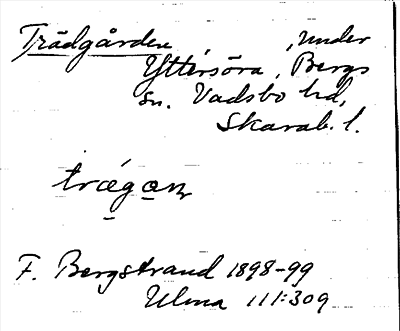 Trädgården, under
Yttersöra, Bergs
sn. Vadsbo hd,
Skarab. l.
trægan
F. Bergstrand 1898-99
Ulma 111:309